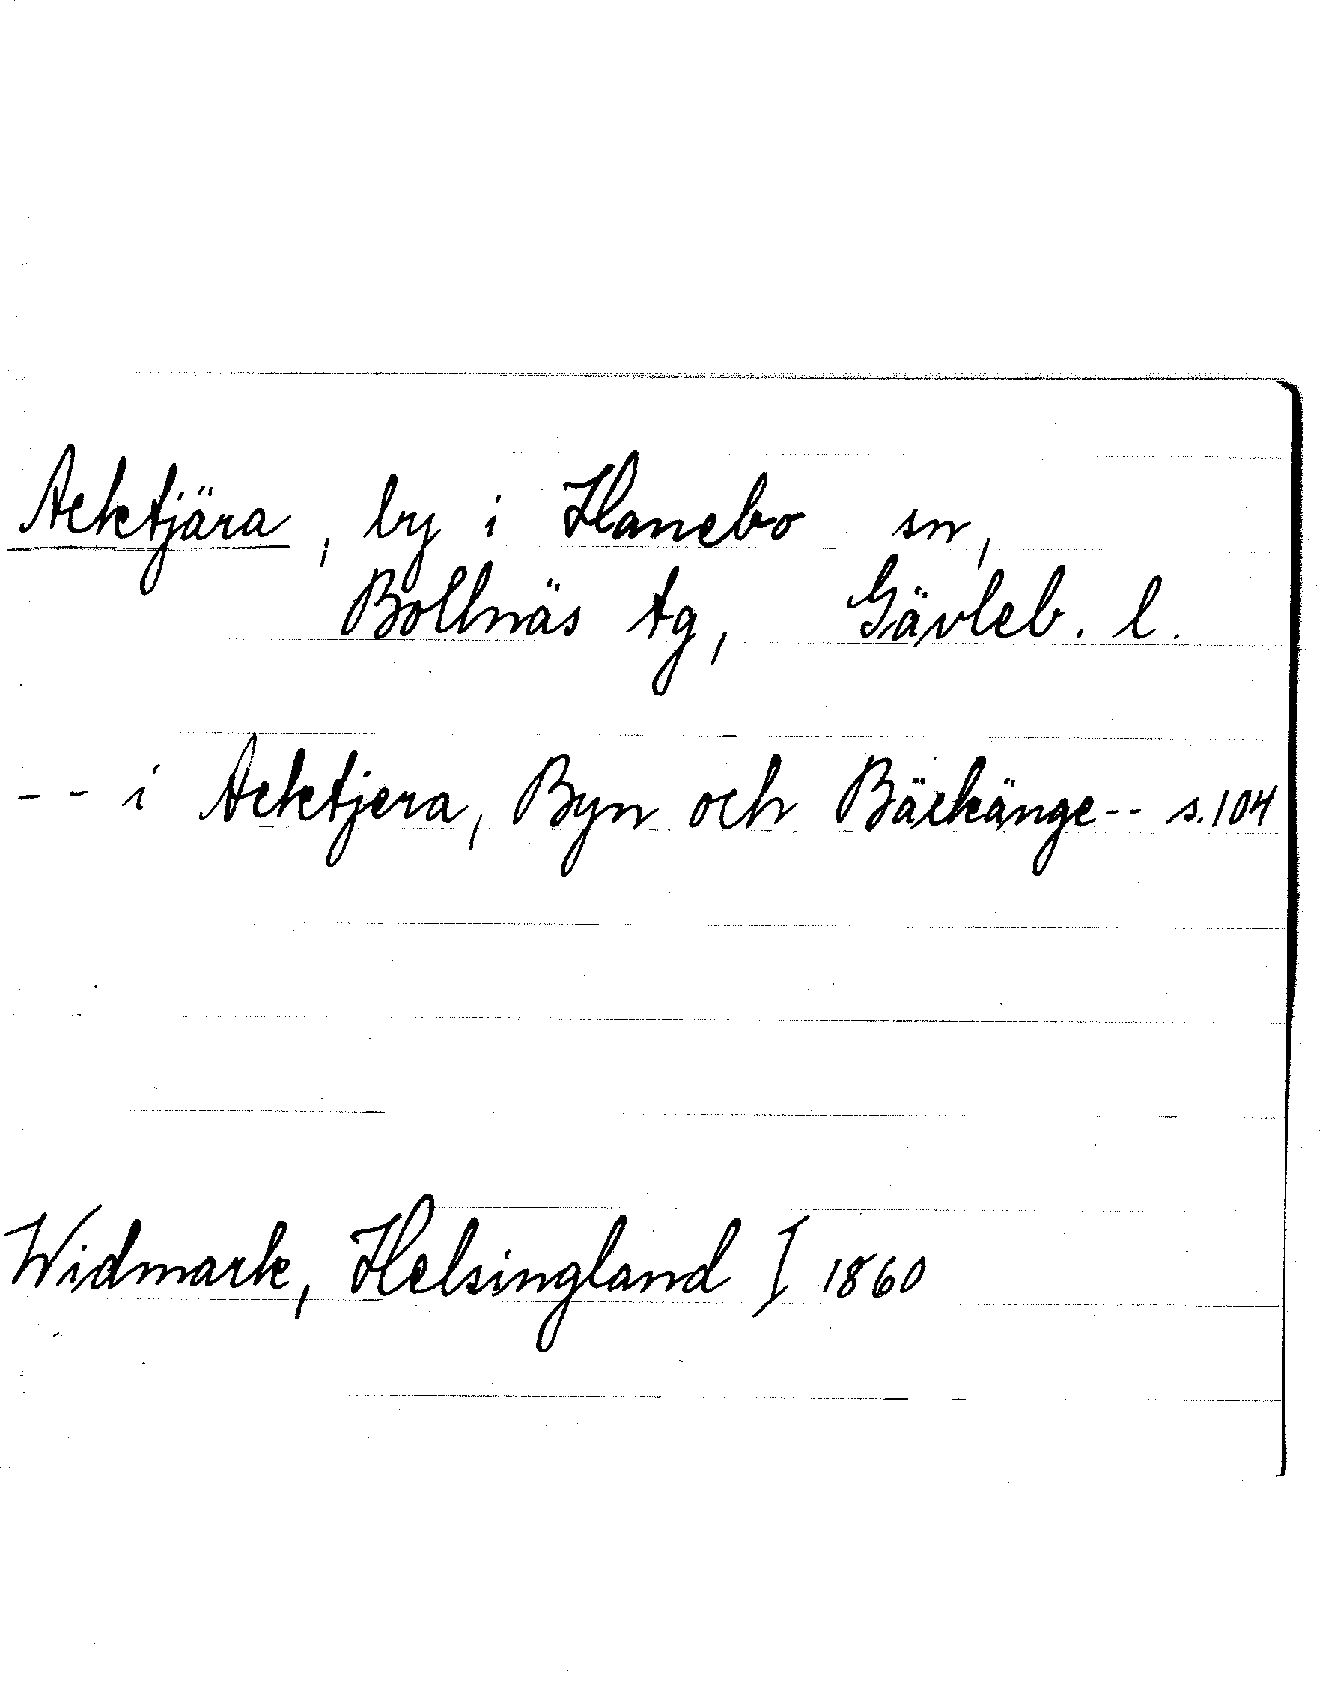 Acktjära, by i Hanebo sn,
Bollnäs tg, Gävleb. l.
-- i Acktjera, Byn och Bäckänge -- s. 104
Widmark, Helsingland I 1860